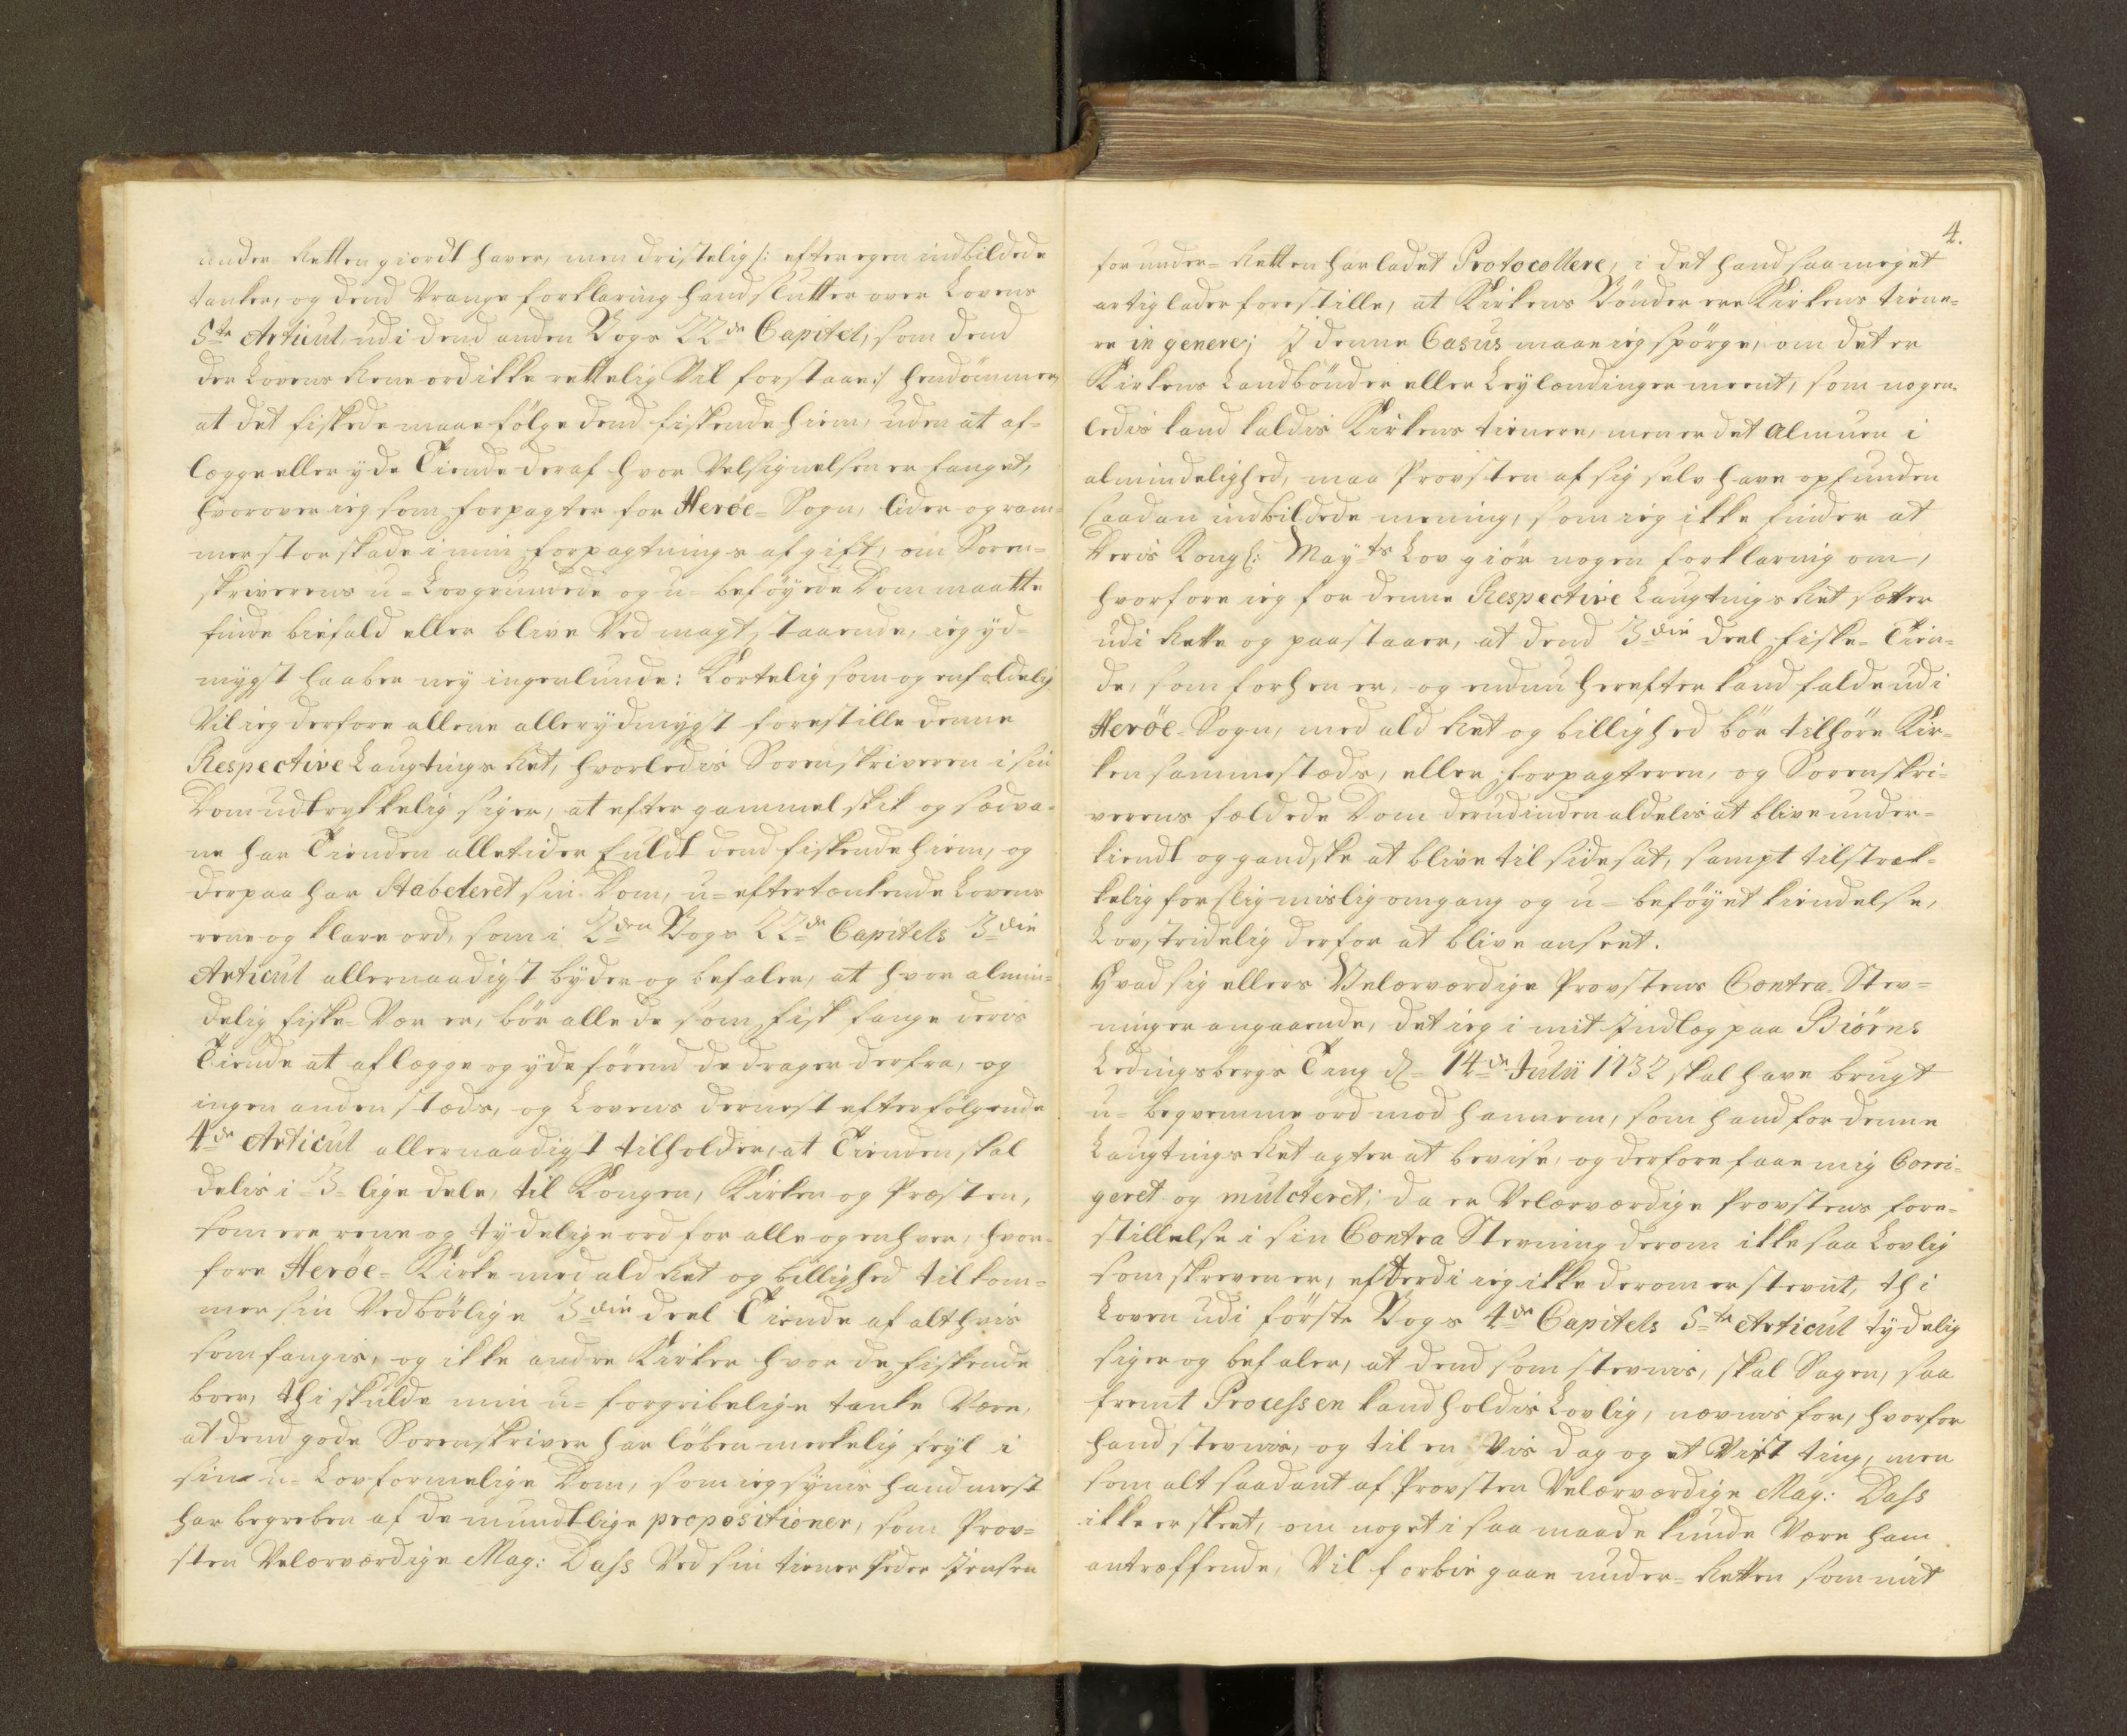 under-Retten giordt haver, men dristelig /: efter egen indbildede
tanker, og dend Vrange forklaring hand slutter over Lovens
5te Articul, udi dend anden Bogs 22de Capitel, som dend
der Lovens Rene ord ikke rettelig Vil forstaae :/ hendömmer,
at det fiskede maae fölge dend fiskende hiem, uden at af-
lægge eller yde Tiende deraf hvor Velsignelsen er fanget,
hvorover ieg som forpagter for Heröe-Sogn, lider og ram-
mer stor skade i min forpagtnings afgift, om Soren-
skriverens u-Lovgrundede og u-beföyede Dom maatte
finde biefald eller blive Ved magt staaende, ieg yd-
mygst haaber ney ingenlunde: Kortelig som og enfoldelig
Vil ieg derfore allene allerydmygst forestille denne
Respective Laugtings Ret, hvorledis Sorenskriveren i sin
Dom udtrykkelig siger, at efter gammel skik og sædva-
ne har Tienden alletider fuldt dend fiskende hiem, og
derpaa har Stabeleret sin Dom, u-eftertænkende Lovens
rene og klare ord, som i 2den Bogs 22de Capitels 3die
Articul allernaadigst byder og befaler, at hvor almin-
delig fiske-Vær er, bör alle de som fisk fange deris
Tiende at aflægge og yde förend de drager derfra, og
ingen anden stæds, og Lovens dernest efterfölgende
4de Articul allernaadigst tilholder, at Tienden skal
delis i 3 lige dele, til Kongen, Kirken og Præsten,
som ere rene og tydelige ord for alle og enhver, hvor-
fore Heröe-Kirke med ald Ret og billighed tilkom-
mer sin Vedbörlige 3die deel Tiende af alt hvis
som fangis, og ikke andre Kirker hvor de fiskende
boer, thi skulde min u-forgribelige tanke Være,
at dend gode Sorenskriver har löben merkelig feyl i
sin u-Lovformelige Dom, som ieg synis hand mest
har begreben af de mundtlige propositioner, som Prov-
sten Velærværdige Mag: Dass Ved sin tiener Peder Jensen
4.
for under-Retten har ladet Protocollere, i det hand saa meget
artig lader forestille, at Kirkens Bönder ere Kirkens tiene-
re in genere; I denne Casus maae ieg spörge, om det er
Kirkens Landbönder eller Leylændinger meent, som nogen-
ledis kand kaldis Kirkens tienere, men er det Almuen i
almindelighed, maa Provsten af sig selv have opfunden
saadan indbildede mening, som ieg ikke finder at
Deris Kongl: Mayts Lov giör nogen forklaring om,
hvorfore ieg for denne Respective Laugtings Ret sætter
udi Rette og paastaaer, at dend 3die deel fiske-Tien-
de, som forhen er, og endnu herefter kand falde udi
Heröe-Sogn, med ald Ret og billighed bör tilhöre Kir-
ken sammestæds, eller forpagteren, og Sorenskri-
verens fældede Dom derudinden aldelis at blive under-
kiendt og gandske at blive til side sat, sampt tilstræk-
kelig for slig mislig omgang og u-beföyet kiendelse,
Lovstridelig derfor at blive anseet.
Hvad sig ellers Velærværdige Provstens Contra-Stev-
ninger angaaende, det ieg i mit Indlæg paa Biörns
Ledingsbergs Ting d. 14de Julii 1732 skal have brugt
u-beqvemme ord mod hannem, som hand for denne
Laugtings Ret agter at bevise, og derfore faae mig Corri-
geret og mulcteret; da er Velærværdige Provstens fore-
stillelse i sin Contra Stevning derom ikke saa Lovlig
som skreven er, efterdi ieg ikke derom er stevnt, thi
Loven udi förste Bogs 4de Capitels 5te Articul tydelig
siger og befaler, at dend som stevnis, skal Sagen, saa
fremt Processen kand holdis Lovlig, nævnis for, hvorfor
hand stevnis, og til en Vis dag og et Vist ting, men
som alt saadant af Provsten Velærværdige Mag: Dass
ikke er skeet, om noget i saa maade kunde Være ham
antræffende, Vil forbie gaae under-Retten som mit